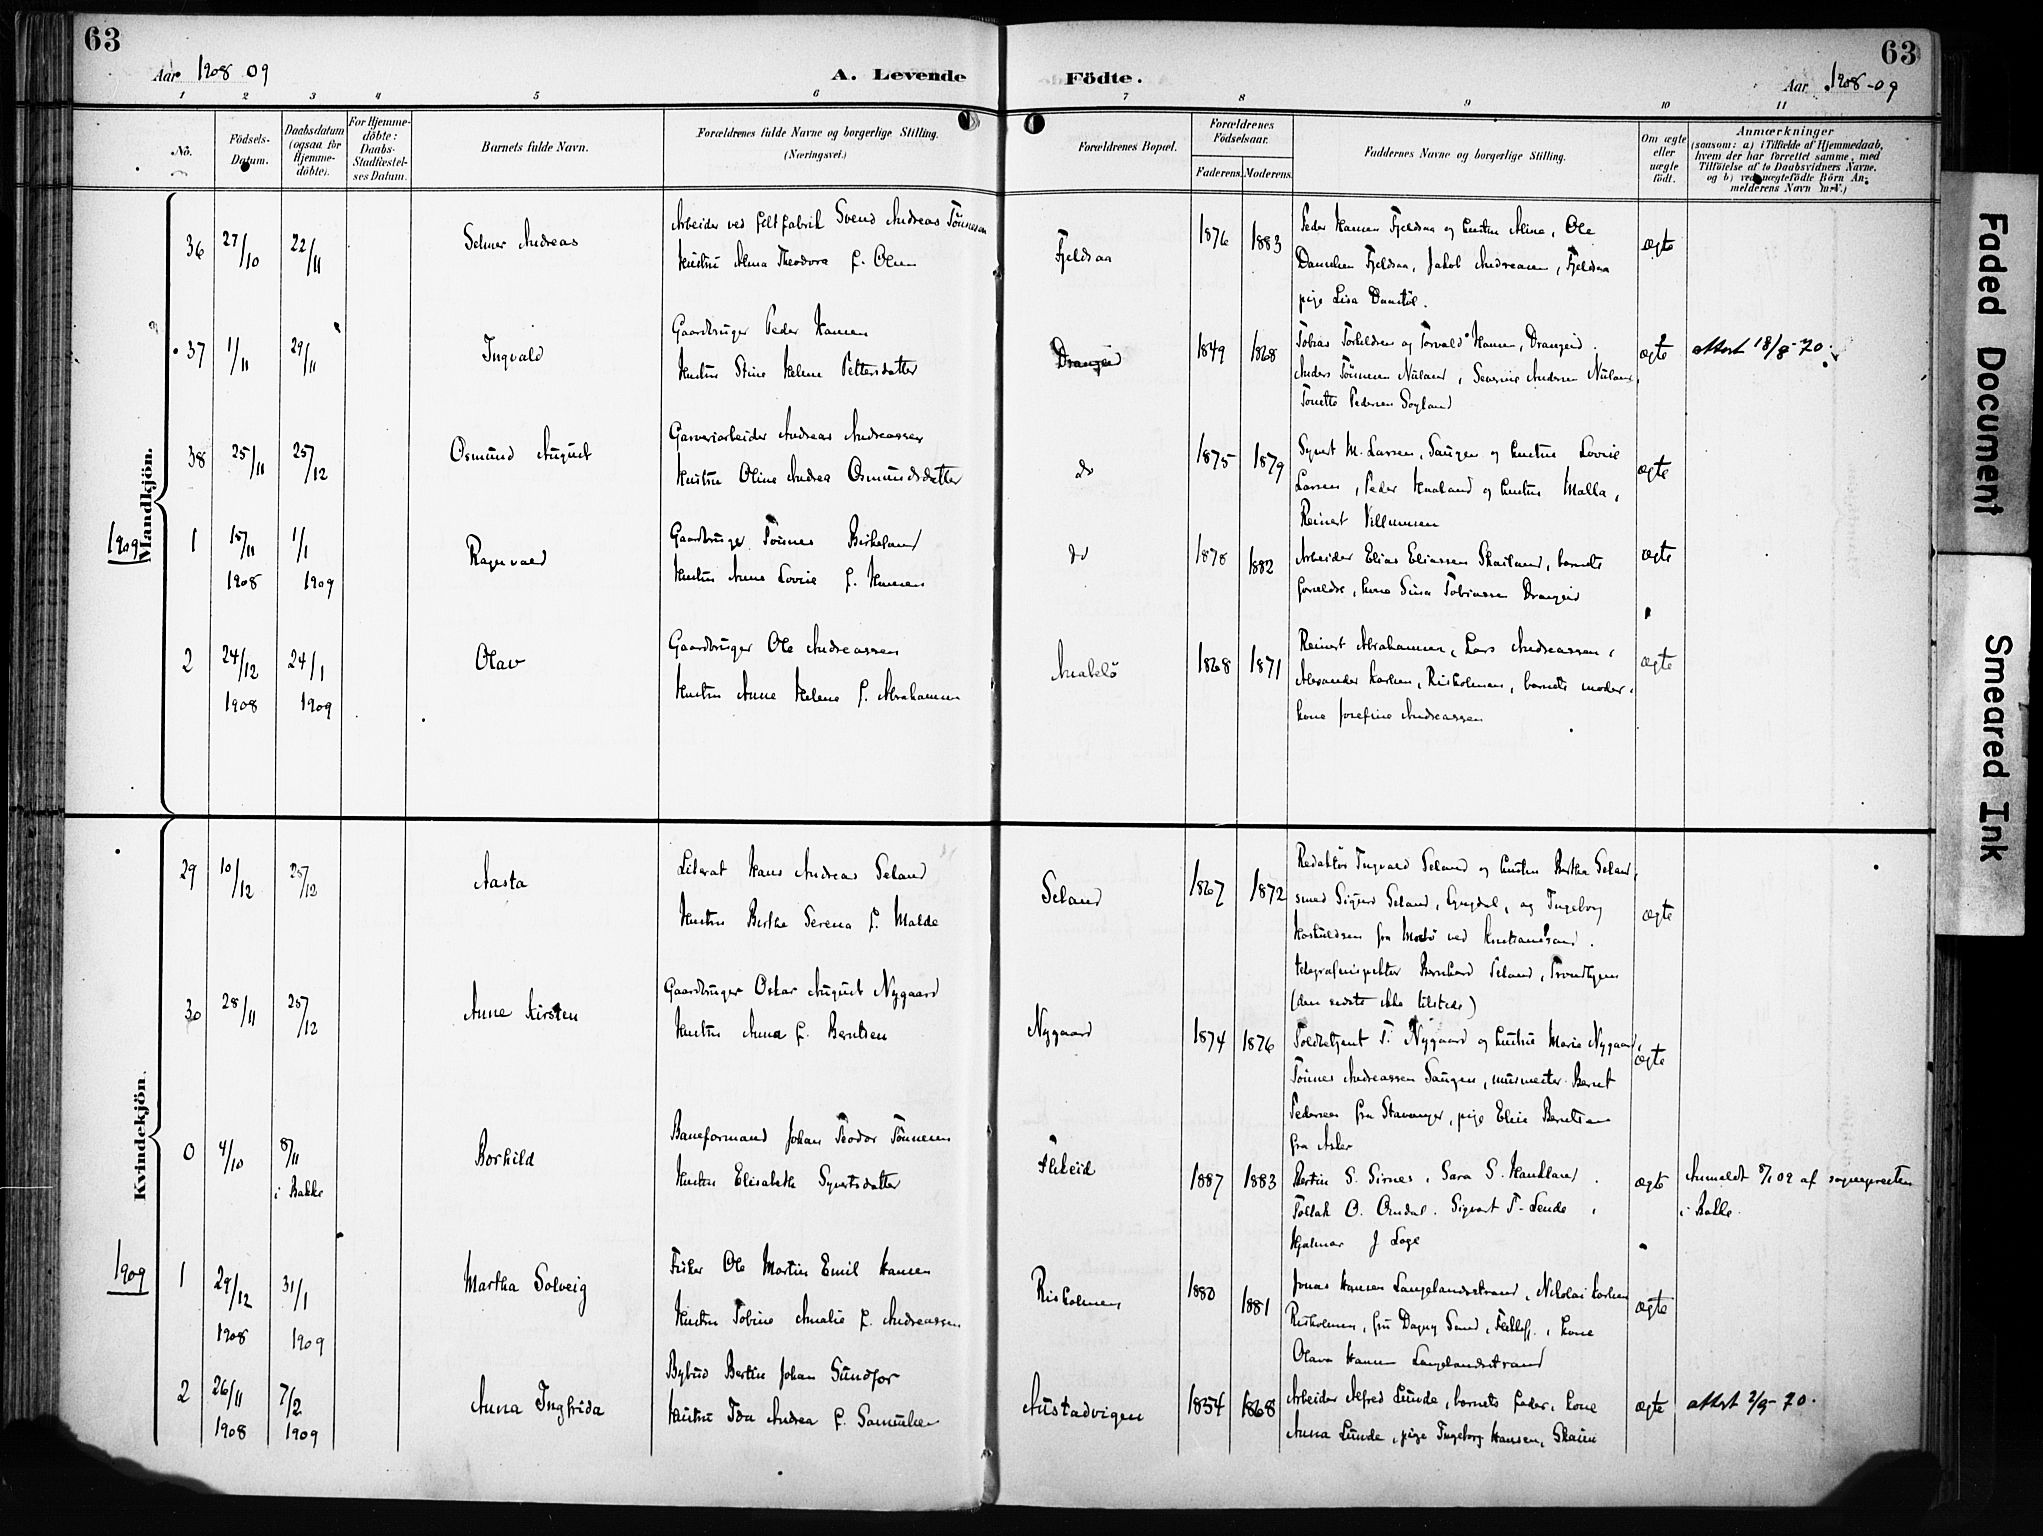 63
Aar 1908 09
A. Levende
Födte.
63
Aar 1908-09
1 2 3 4 5 6 7 8 9 10 11
No.
Födsels-
Datum.
Daabsdatum
(ogsaa for
Hjemme-
döbte).
For Hjemme-
döbte:
Daabs-
Stadfæstel-
ses Datum.
Barnets fulde Navn.
Forældrenes fulde Navne og borgerlige Stilling.
(Næringsvei.)
Forældrenes Bopæl.
Forældrenes
Födselsaar.
Faderens. Moderens.
Faddernes Navne og borgerlige Stilling.
Om ægte
eller
uægte
födt.
Anmærkninger
(saasom: a) i Tilfælde af Hjemmedaab,
hvem der har forrettet samme, med
Tilföielse af to Daabsvidners Navne.
og b) ved uægtefödte Börn An-
melderens Navn m.V.)
Mandkjön.
36 27/10 22/11 Selmer Andreas
Arbeider ved filtfabrik Svend Andreas Tönnesen
Hustru Alma Theodora f. Olsen
Fjeldsaa 1876 1883
Peder Hansen Fjeldsaa og hustru Aline, Ole
Danielsen Fjeldsaa, Jakob Andreasen, Fjeldsaa
pige Lisa
ægte
37 1/11 29/11 Ingvald
Gaardbruger Peder Hansen
Hustru Stine Helene Pettersdatter
Drangeid 1849 1868
Tobias Torkildsen og Torvald Hansen, Drangeid
Anders Tönnesen Nuland, Severine Andersen Nuland,
Tonette Pedersen
ægte attest 18/8-70.
38 25/11 25/12 Osmund August
Garveriarbeider Andreas Andreassen
Hustru Oline Andrea Osmundsdatter
do 1875 1879
Syvert M. Larsen, Saugen og hustru Lovise
Larsen, Peder Haaland og hustru Malla,
Reinert Villumsen
ægte
1909
1 15/11 1908 1/1 1909 Ragnvald
Gaardbruger Tönnes Birkeland
Hustru Anna Lovise f. Hansen
do 1878 1882
Arbeider Elias Eliassen Skailand, barnets
forældre, kone Sina Tobiassen Drangeid
ægte
2 24/12 1908 24/1 1909 Olav
Gaardbruger Ole Andreassen
Hustru Anne Helene f. Abrahamsen
Anabelö 1868 1871
Reinert Abrahamsen, Lars Andreassen,
Alexander Karlsen, Risholmen, barnets moder,
kone Josefine Andreassen
ægte
Kvindekjön.
29 10/12 25/12 Aasta
Literat Hans Andreas Seland
Hustru Berthe Serena f. Malde
Seland 1867 1872
Redaktör Ingvald Seland og hustru Bertha Seland,
smed Sigurd Seland, og Ingeborg
fra ved Kristiansand.
telegrafinspektör Bernhard Seland, Trondhjem
(den sidste ikke tilstede)
ægte
30 28/11 25/12 Anne Kirsten
Gaardbruger Oskar August Nygaard
Hustru Anna f. Berntsen
Nygaard 1874 1876
Toldbetjent T. Nygaard og hustru Marie Nygaard,
Tönnes Andreassen Saugen, murmester Bernt
Pedersen fra Stavanger, pige Elise Berntsen
fra Asker
ægte
0 4/10 8/11 i Bakke Borhild
Baneformand Johan Teodor Tönnesen
Hustru Elisabeth Syvertsdatter
Flikeid 1887 1883
Bertin S. Sirnes, Sara S. Haukland
Tollak O. Omdal. Sigvart T. Lende,
Hjalmar J Loge
ægte
Anmeldt 8/1 09 af sognepresten
i Bakke.
1909
1 29/12 1908 31/1 1909 Martha Solveig
Fisker Ole Martin Emil Hansen
Hustru Tobine Amalie f. Andreassen
Risholmen 1880 1881
Jonas Hansen Langelandsstrand, Nikolai Karlsen
Risholmen, fru Dagny Sund, Flekkef., kone
Olava Hansen Langelandsstrand
ægte
2 26/11 1908 7/2 1909 Anna Ingfrida
Bybud Bertin Johan Sundfor
Hustru Ida Andrea f. Samuelsen
Austadvigen 1854 1868
Arbeider Alfred Lunde, barnets fader, kone
Anna Lunde, pige Ingeborg Hansen,
ægte attest 2/9-70.
Faded Document
Smeared Ink